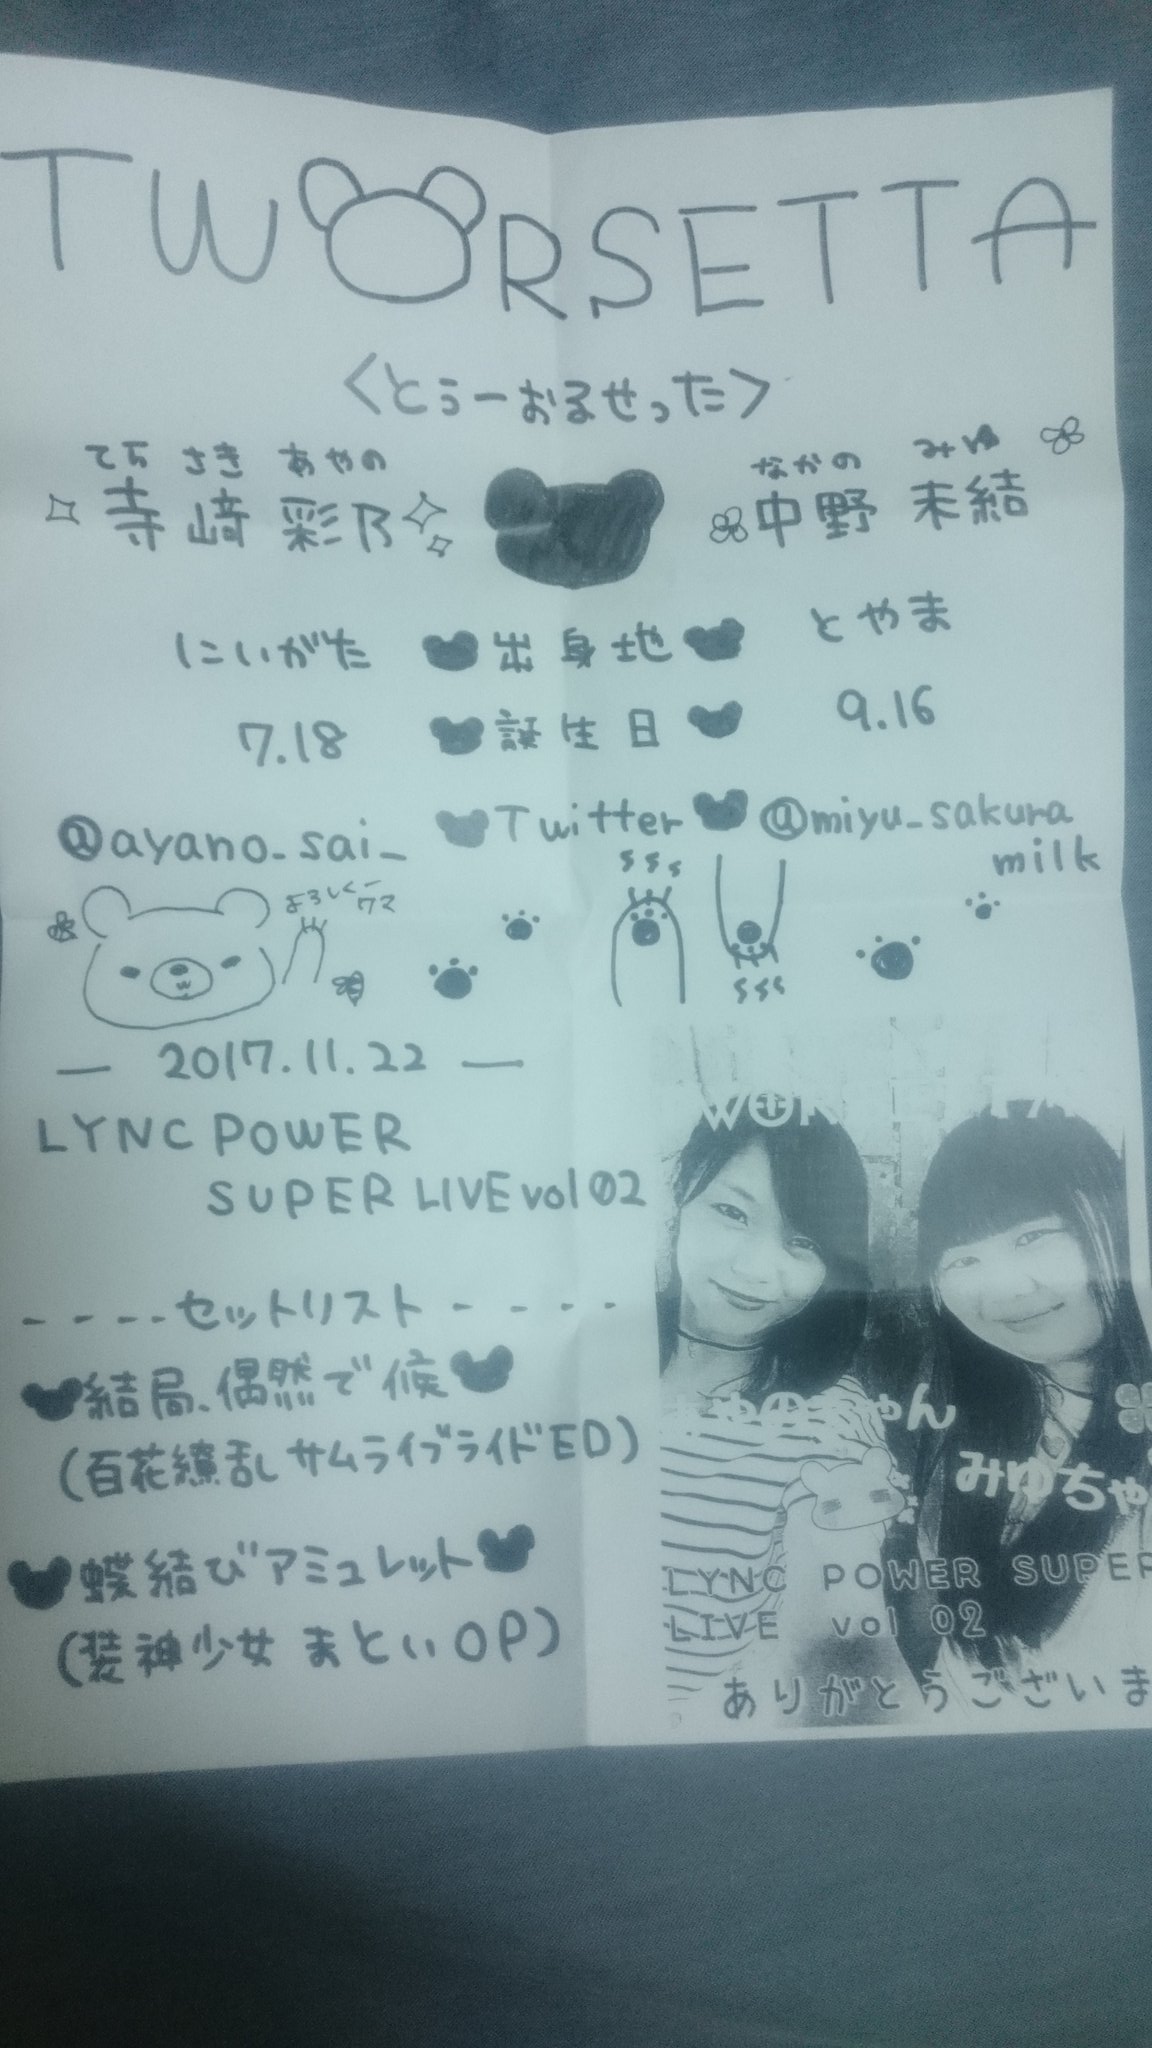 TWORSETTA
<とぅーおるせった>
てら さき あやの
寺﨑 彩乃
なかの みゆ
中野 未結
にいがた 出身地 とやま
7.18 誕生日 9.16
@ayano_sai_ Twitter @miyu_sakura
milk
よろしくー
クマ
sss
sss
― 2017.11.22 ―
LYNC POWER
SUPER LIVE vol 02
----セットリスト----
結局、偶然で候
(百花繚乱サムライブライドED)
蝶結びアミュレット
(装神少女まといOP)
みゆちゃ
LYNC POWER SUPER
LIVE vol 02
ありがとうございま